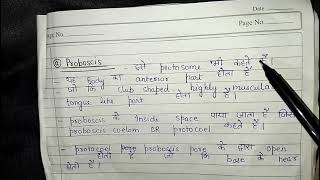 Date
Page No
Page No.
① Proboscis - इसे protosome भी कहते हैं।
- यह body का anterior part होता है
जो कि club shaped highly muscular
tongue like part होता है।
- proboscis के inside space पाया जाता है जिसे
proboscis coelom OR protocoel कहते हैं।
- protocoel pore proboscis pore के द्वारा open
होता है जो कि base के near
होता है।